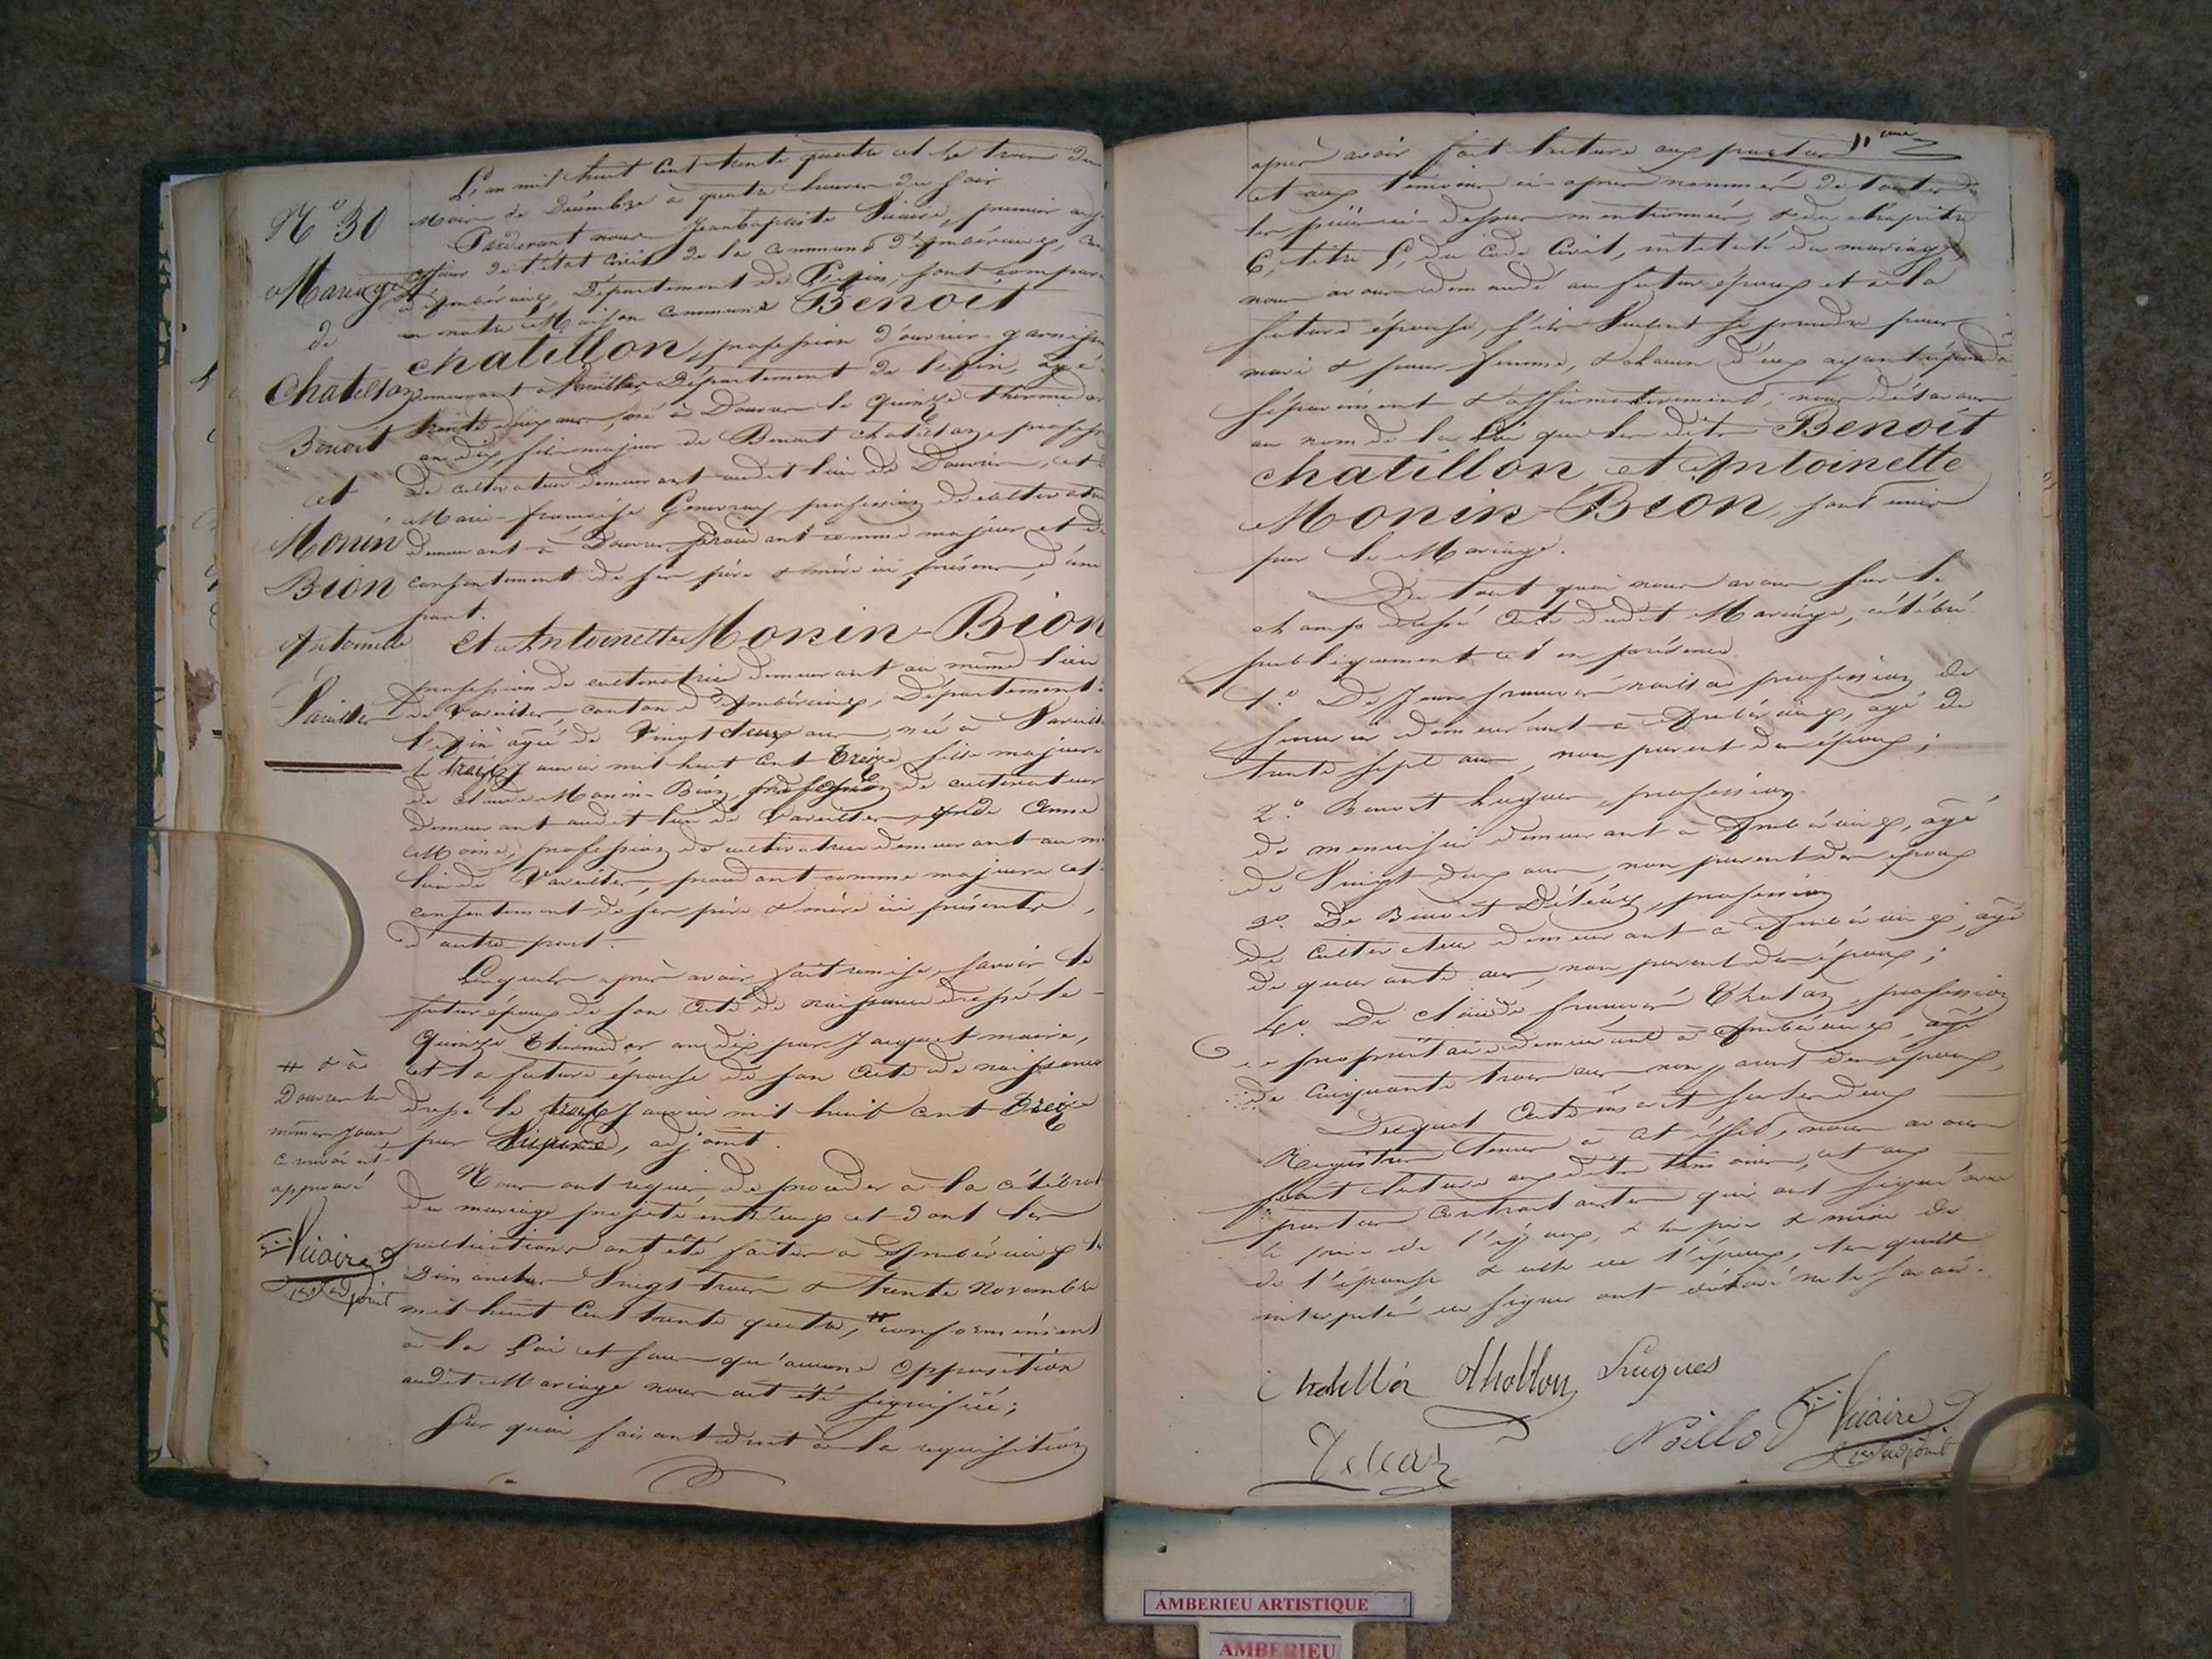 N° 30
Mariage
de
Chatillon
Benoit
et
Monin
Bion
Antoinette
Vareilles
L'an mil huit Cent trente quatre et le trois du
Mois de Décembre à quatre heures du soir
Pardevant nous Jeanbaptiste Vicaire, premier adj
officier de l'état civil de la commune d'Ambérieux,
d'Ambérieux, Département de l'ain, sont compar
en notre Maison commune Benoit
chatillon, profession d'ouvrier
demeurant à Vareilles Département de l'ain, agé
trente deux ans, né à Douvres le quinze thermidor
an dix, fils majeur de Benoit chatillon profess
de cultivateur demeurant audit lieu de Douvres, et
Marie-françoise profession de cultivatrice
demeurant à Douvres procédant comme majeur et du
consentement de ses père & mère ici présens, d'une
part.
Et Antoinette Monin-Bion
profession de cultivatrice demeurant au même lieu
de Vareilles canton d'Ambérieux, Département
l'ain âgée de Vingt deux ans, née à Vareilles
le Janvier mil huit Cent treize, fille majeure
de claude Monin-Bion, profession de cultivateur
demeurant audit lieu de Vareilles, & de Anne
profession de cultivatrice demeurant au m
lieu de Vareilles, procédant comme majeure et
consentement de ses père & mère ici présents,
d'autre part.
Lesquels après avoir fait remise, savoir le
futur époux de son acte de naissance dressé le
Quinze thermidor an dix par Jacquet maire,
et la future épouse de son acte de naissance
dressé le Janvier mil huit cent treize
par adjoint.
Nous ont requis de procéder à la célébrat
du mariage projeté entr'eux et dont les
publications ont été faites à Ambérieux les
Dimanches Vingt trois & trente Novembre
mil huit Cent trente quatre, # conformément
à la Loi et sans qu'aucune Opposition
audit Mariage nous ait été signifiée;
Sur quoi faisant droit à la requisition
# & à
Douvres les
mêmes jours
renvoi et
approuvé
Vicaire
1er adjoint
11eme
après avoir fait lecture aux parties
et aux témoins ci-après nommés de toutes
les pièces ci-dessus mentionnées, & du chapitre
6, titre 5, du Code Civil, intitulé du mariage
nous avons demandé au futur époux et à la
future épouse, s'ils Veulent se prendre pour
mari & pour femme, & chacun d'eux ayant répondu
séparément & affirmativement; nous déclarons
au nom de la Loi que lesdits Benoit
chatillon et Antoinette
Monin-Bion, sont unis
par le Mariage.
De tout quoi nous avons sur le
champ dressé acte dudit Mariage, célébré
publiquement et en présence
1° De Jean françois profession de
demeurant à Ambérieux, agé de
trente sept ans, non parent des époux;
2° Benoit hugues, profession
de menuisier demeurant à Ambérieux, âgé
de Vingt deux ans, non parent des époux
3° De Benoit profession
de cultivateur demeurant à Ambérieux, âgé
de quarante ans, non parent des époux;
4° De Claude françois profession
de propriétaire demeurant à Ambérieux, âgé
de Cinquante trois ans non parent des époux,
Duquel acte inscrit sur les deux
Registres tenus à cet effet, nous avons
fait lecture auxdits témoins, et aux
parties contractantes qui ont signé avec
le père de l'époux, & les père & mère de
de l'épouse & celle de l'époux, lesquels
interpelés de signer ont déclaré ne le savoir.
Chatillon Chatillon Hugues
Vicaire
1er adjoint
AMBERIEU ARTISTIQUE
AMBERIEU